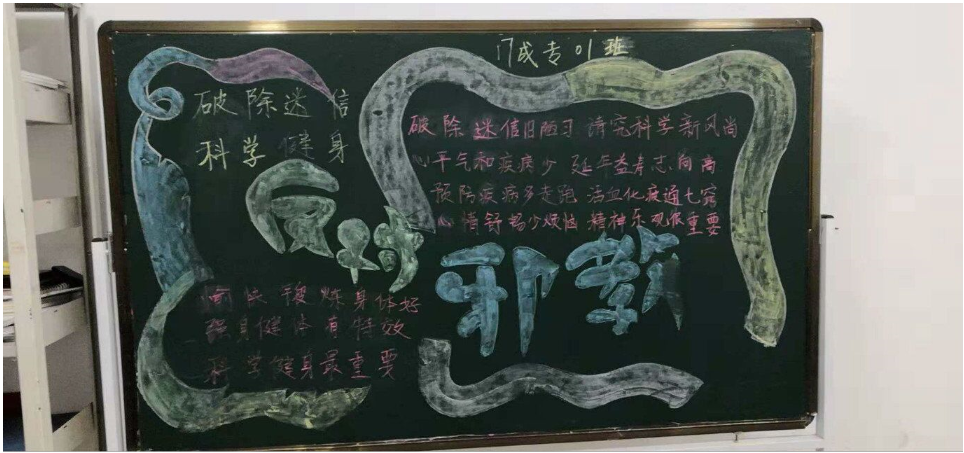 17成专01班
破除迷信
科学健身
反对
邪教
破除迷信旧陋习 请究科学新风尚
心平气和疾病少 延年益寿志向高
预防疾病多走跑 活血化瘀通七窍
心情舒畅少烦恼 精神乐观很重要
愉快锻炼身体好
强身健体有特效
科学健身最重要